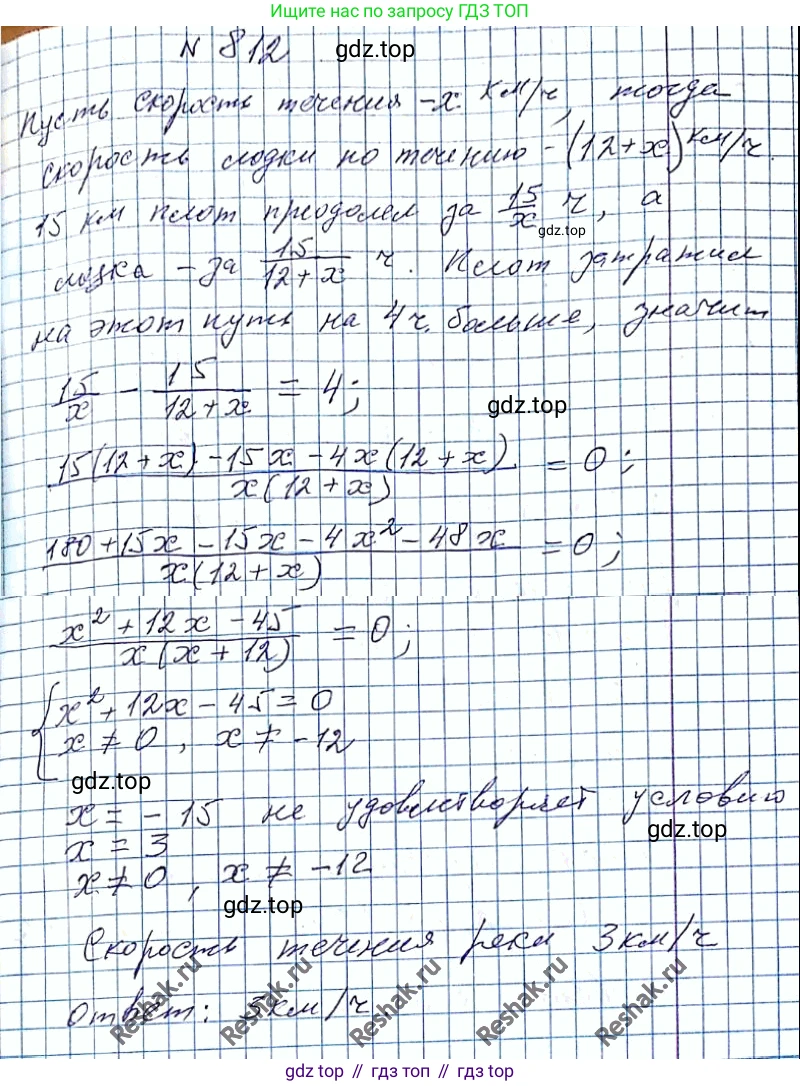 Ищите нас по запросу ГДЗ ТОП
N 812
gdz.top
Пусть скорость течения - x км/ч, тогда
скорость лодки по течению - (12+x) км/ч.
15 км плот преодолел за 15/x ч, а
gdz.top
лодка - за 15/(12+x) ч. Плот затратил
на этот путь на 4ч. больше, значит
15/x - 15/(12+x) = 4;
gdz.top
(15(12+x) - 15x - 4x(12+x))/(x(12+x)) = 0;
(180+15x - 15x - 4x² - 48x)/(x(12+x)) = 0;
(x² + 12x - 45)/(x(x+12)) = 0;
{ x² + 12x - 45 = 0
x ≠ 0, x ≠ -12
gdz.top
x = - 15 не удовлетворяет условию
gdz.top
x = 3
x ≠ 0, x ≠ -12
gdz.top
Скорость течения реки 3км/ч
Reshak.ru Reshak.ru Reshak.ru Reshak.ru
Ответ: 3км/ч.
gdz.top // гдз.топ // gdz.top // гдз.топ